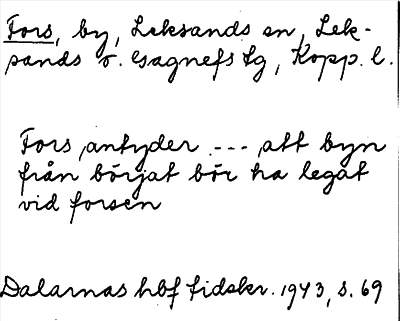 Fors, by, Leksands sn, Lek-
sands o. Gagnefs tg, Kopp. l.
Fors antyder --- att byn
från börjat bör ha legat
vid forsen
Dalarnas hbf tidskr. 1943, s. 69